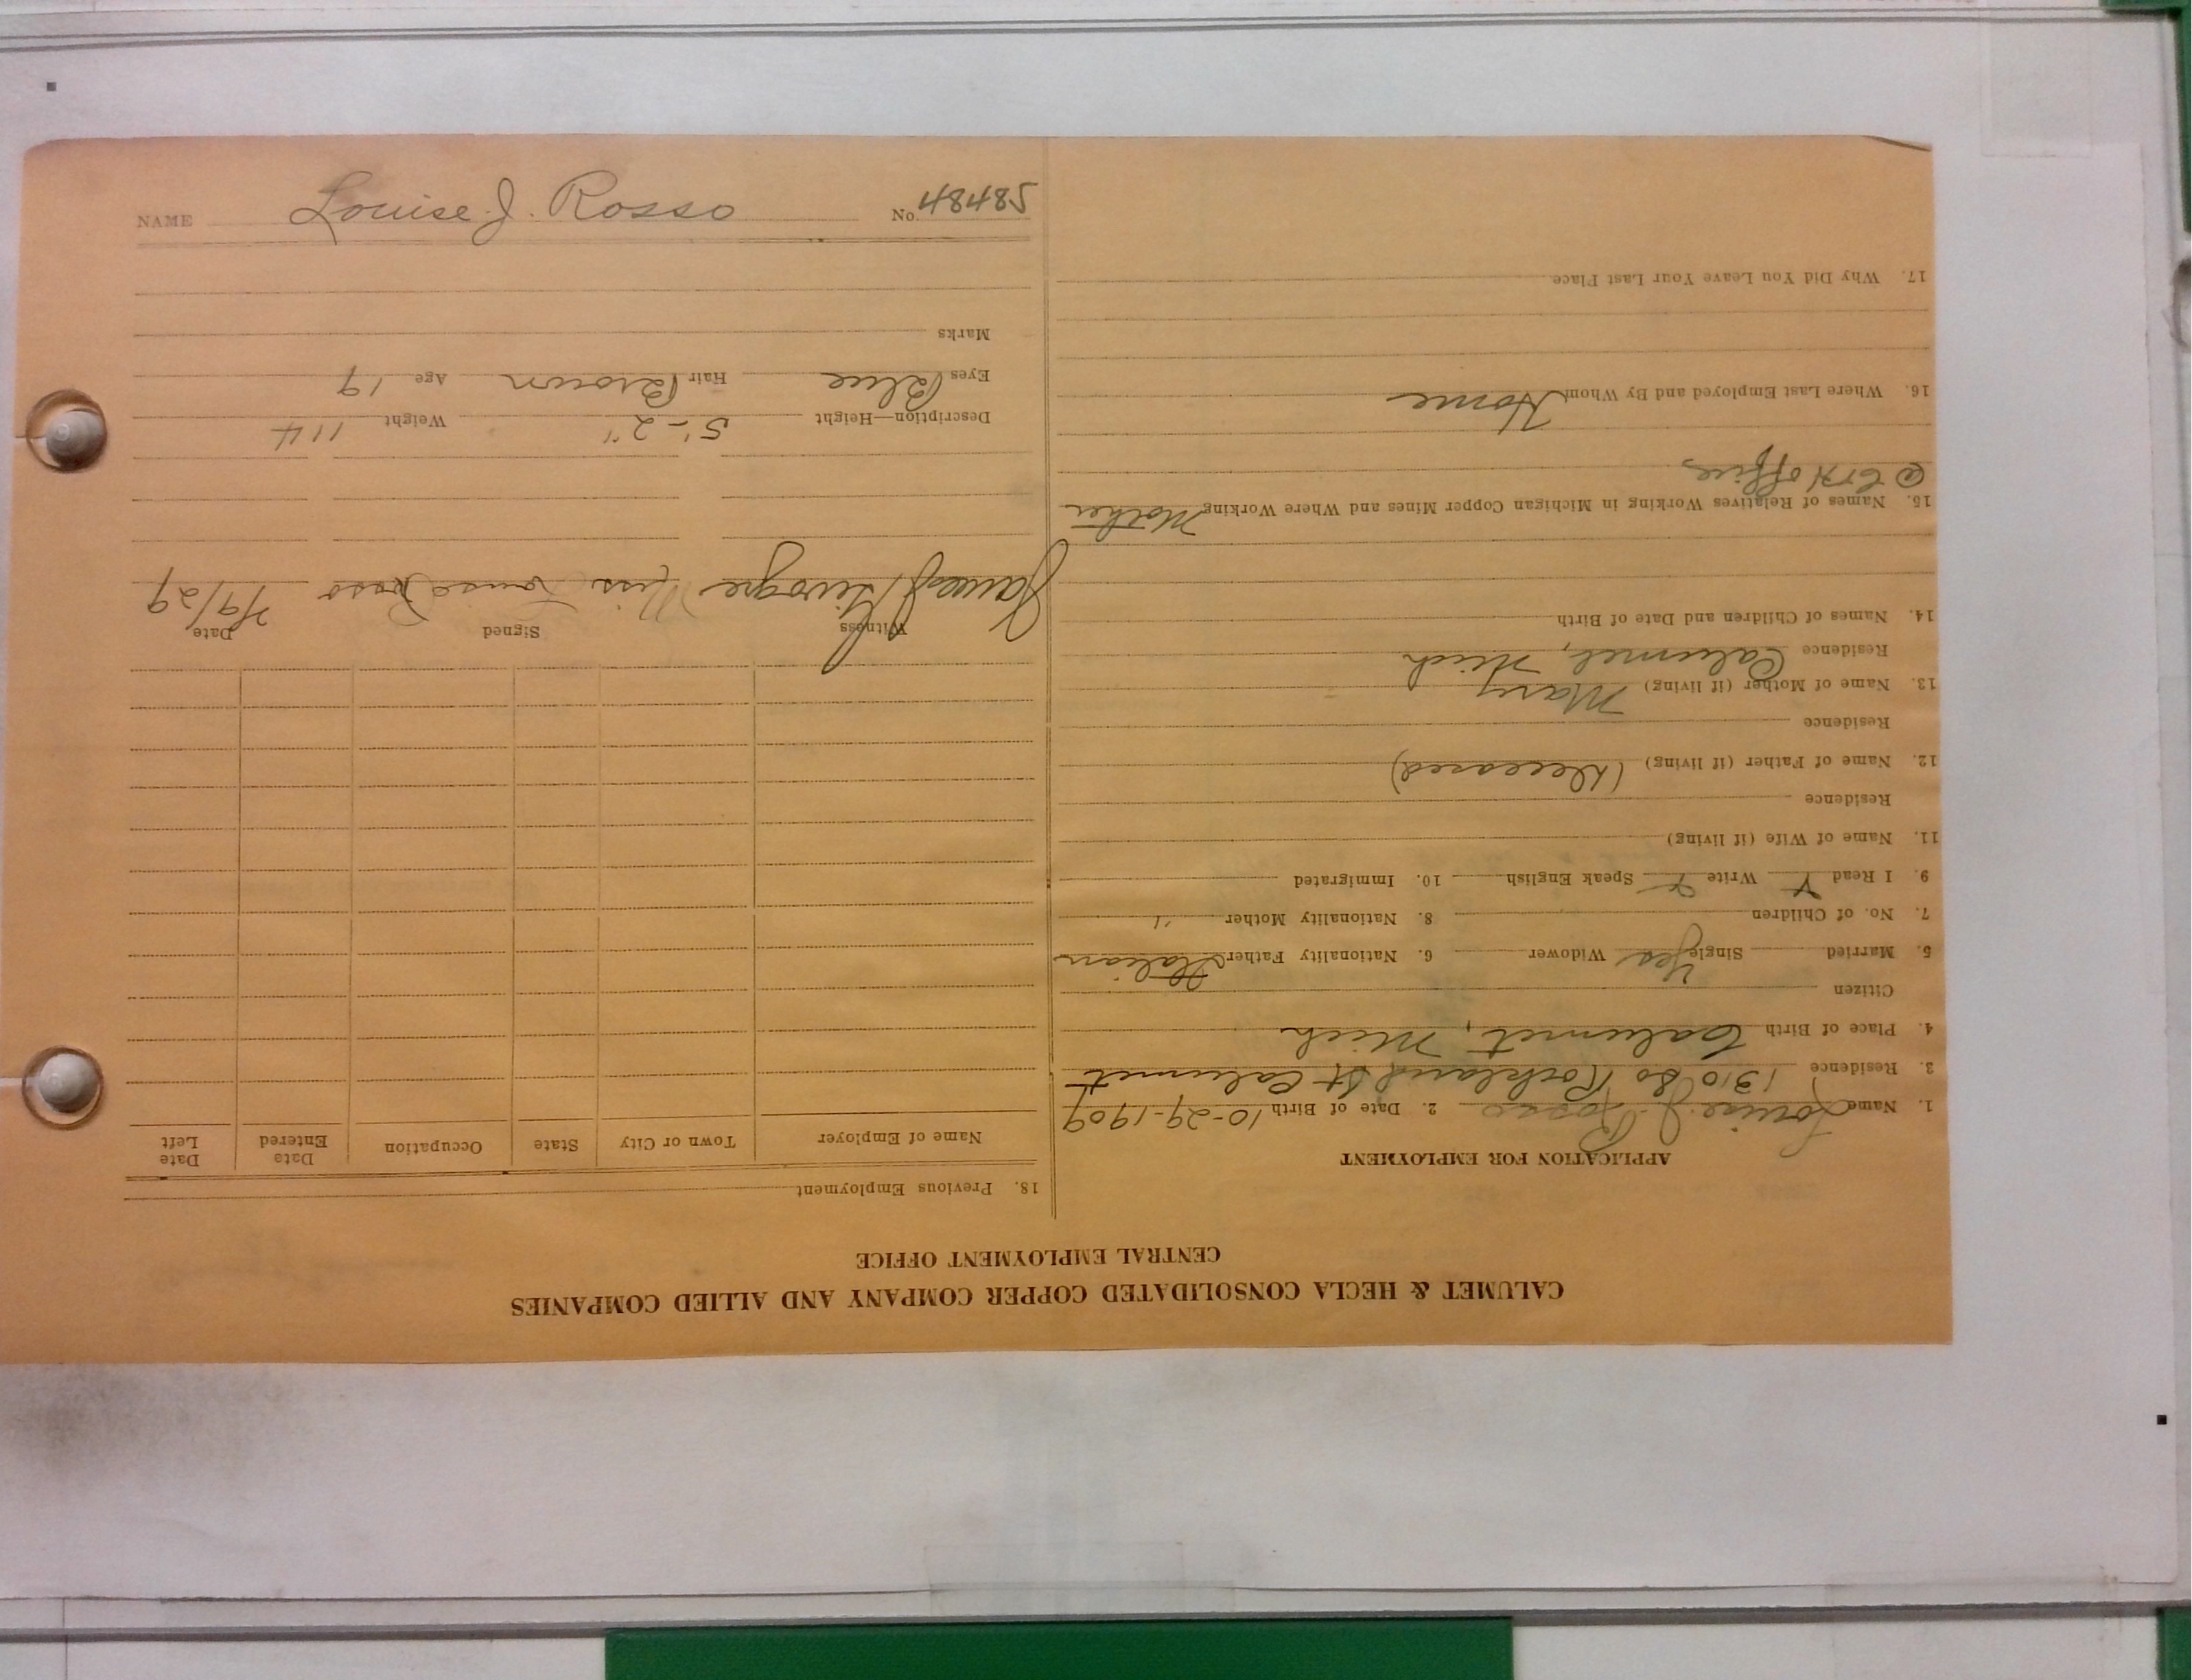 NAME Louise J. Rosso No. 48485
CALUMET & HECLA CONSOLIDATED COPPER COMPANY AND ALLIED COMPANIES
CENTRAL EMPLOYMENT OFFICE
APPLICATION FOR EMPLOYMENT
1. Name Louise J. Rosso 2. Date of Birth 10-29-1909
3. Residence 1310 So Rockland St Calumet
4. Place of Birth Calumet, Mich
Citizen
5. Married Single Yes Widower 6. Nationality Father Italian
7. No. of Children 8. Nationality Mother "
9. I Read Y Write Y Speak English 10. Immigrated
11. Name of Wife (if living)
Residence
12. Name of Father (if living) (Deceased)
Residence
13. Name of Mother (if living) Mary
Residence Calumet, Mich
14. Names of Children and Date of Birth
15. Names of Relatives Working in Michigan Copper Mines and Where Working Mother
@ C&H office
16. Where Last Employed and By Whom Home
17. Why Did You Leave Your Last Place
18. Previous Employment
Name of Employer Town or City State Occupation Date Entered Date Left
Witness Signed Date
James Miss Louise Rosso 7/9/29
Description—Height 5'-2" Weight 114
Eyes Blue Hair Brown Age 19
Marks